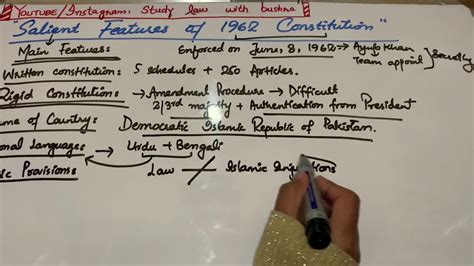 YOUTUBE/Instagram: Study law with bushra
"Salient Features of 1962 Constitution"
Main Features: Enforced on June, 8, 1962 → Ayub khan
Team appoint
Written constitution: 5 schedules + 250 Articles.
Rigid Constitution: → Amendment Procedure → Difficult
2/3rd majority + Authentication from President
ame of Country: Democratic Islamic Republic of Pakistan.
onal Languages: → Urdu + Bengali
ic Provisions: Law Islamic Injunctions